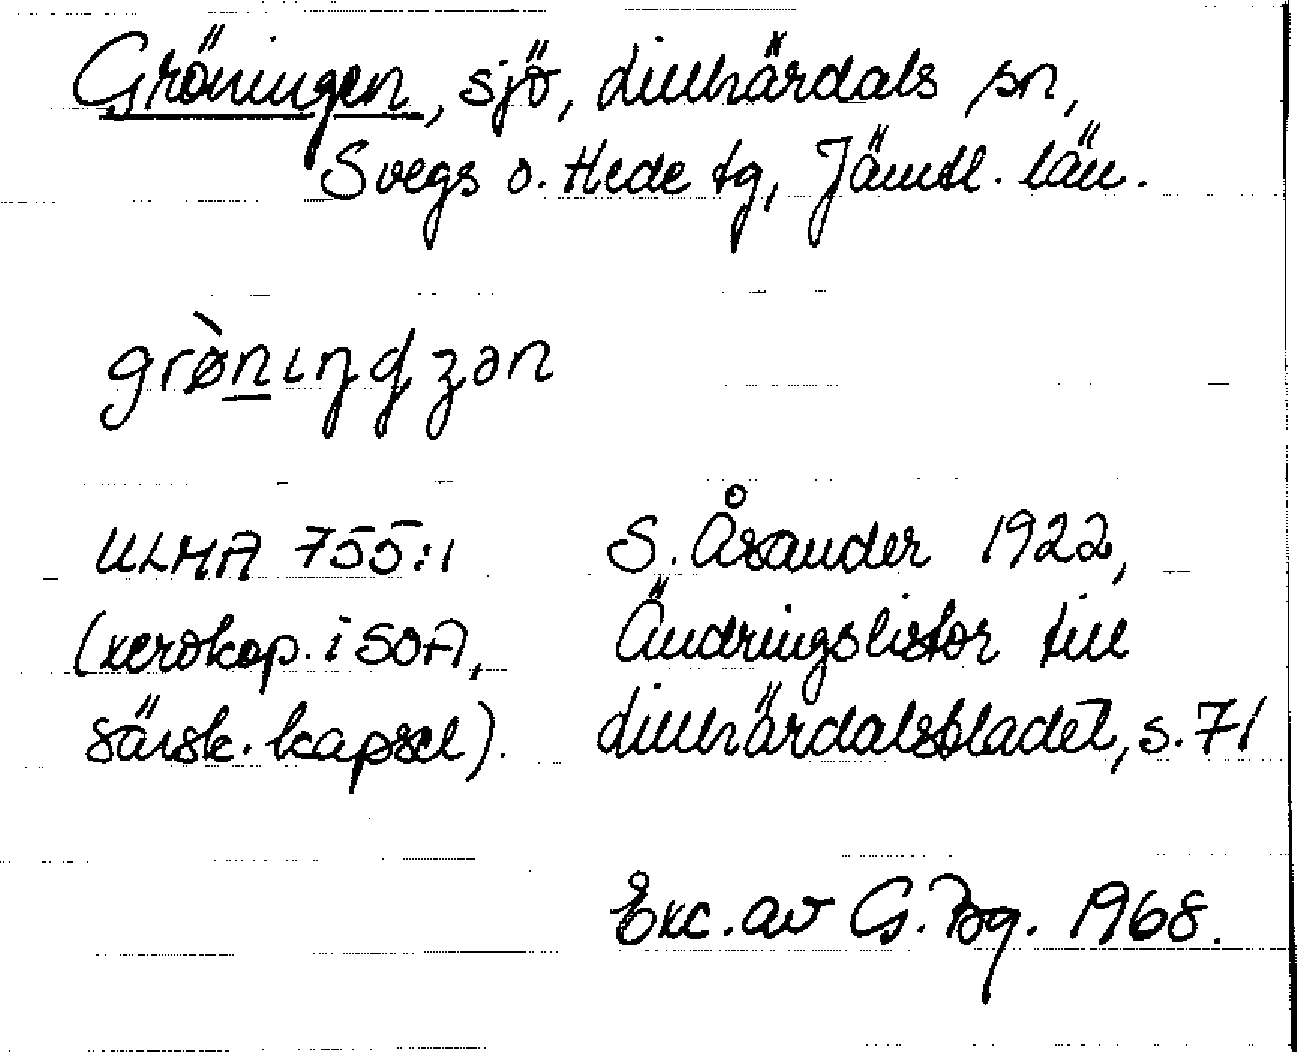 Gröningen, sjö, Lillhärdals sn,
Svegs o. Hede tg, Jämtl. län.
grø̀nıŋʤən
ULMA 755:1
(xerokop. i SOA,
särsk. kapsel).
S. Åsander 1922,
Ändringslistor till
Lillhärdalsbladet, s. 71
Exc. av G. Bg. 1968.